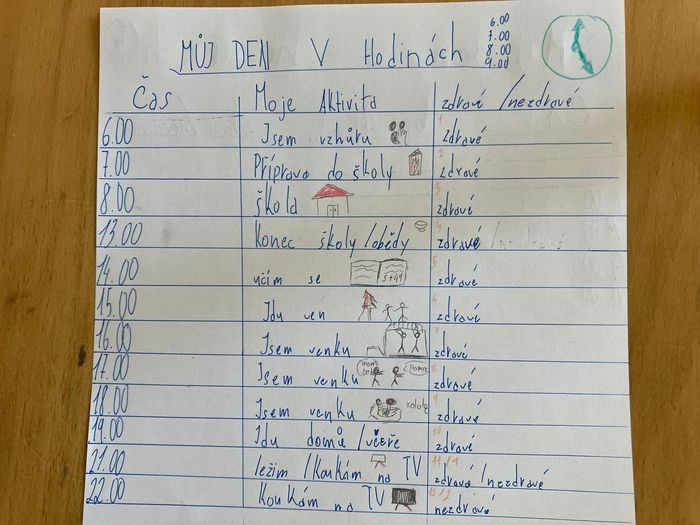 MŮJ DEN V HodináCh
6.00
7.00
8.00
9.00
Čas Moje Aktivita zdraví /nezdravé
6.00 Jsem vzhůru 1 zdravé
7.00 Příprava do školy 2 zdravé
8.00 škola 3 zdravé
13.00 Konec školy /obědy 4 zdravé
14.00 učím se 5+49 5 zdravé
15.00 Jdu ven 6 zdravé
16.00 Jsem venku 7 zdravé
17.00 Jsem venku 8 zdravé
18.00 Jsem venku 9 zdravé
19.00 Jdu domů /večeře 10 zdravé
21.00 ležím /koukám na TV 11/1 zdravá /nezdravé
22.00 koukám na TV 12/2 nezdravé